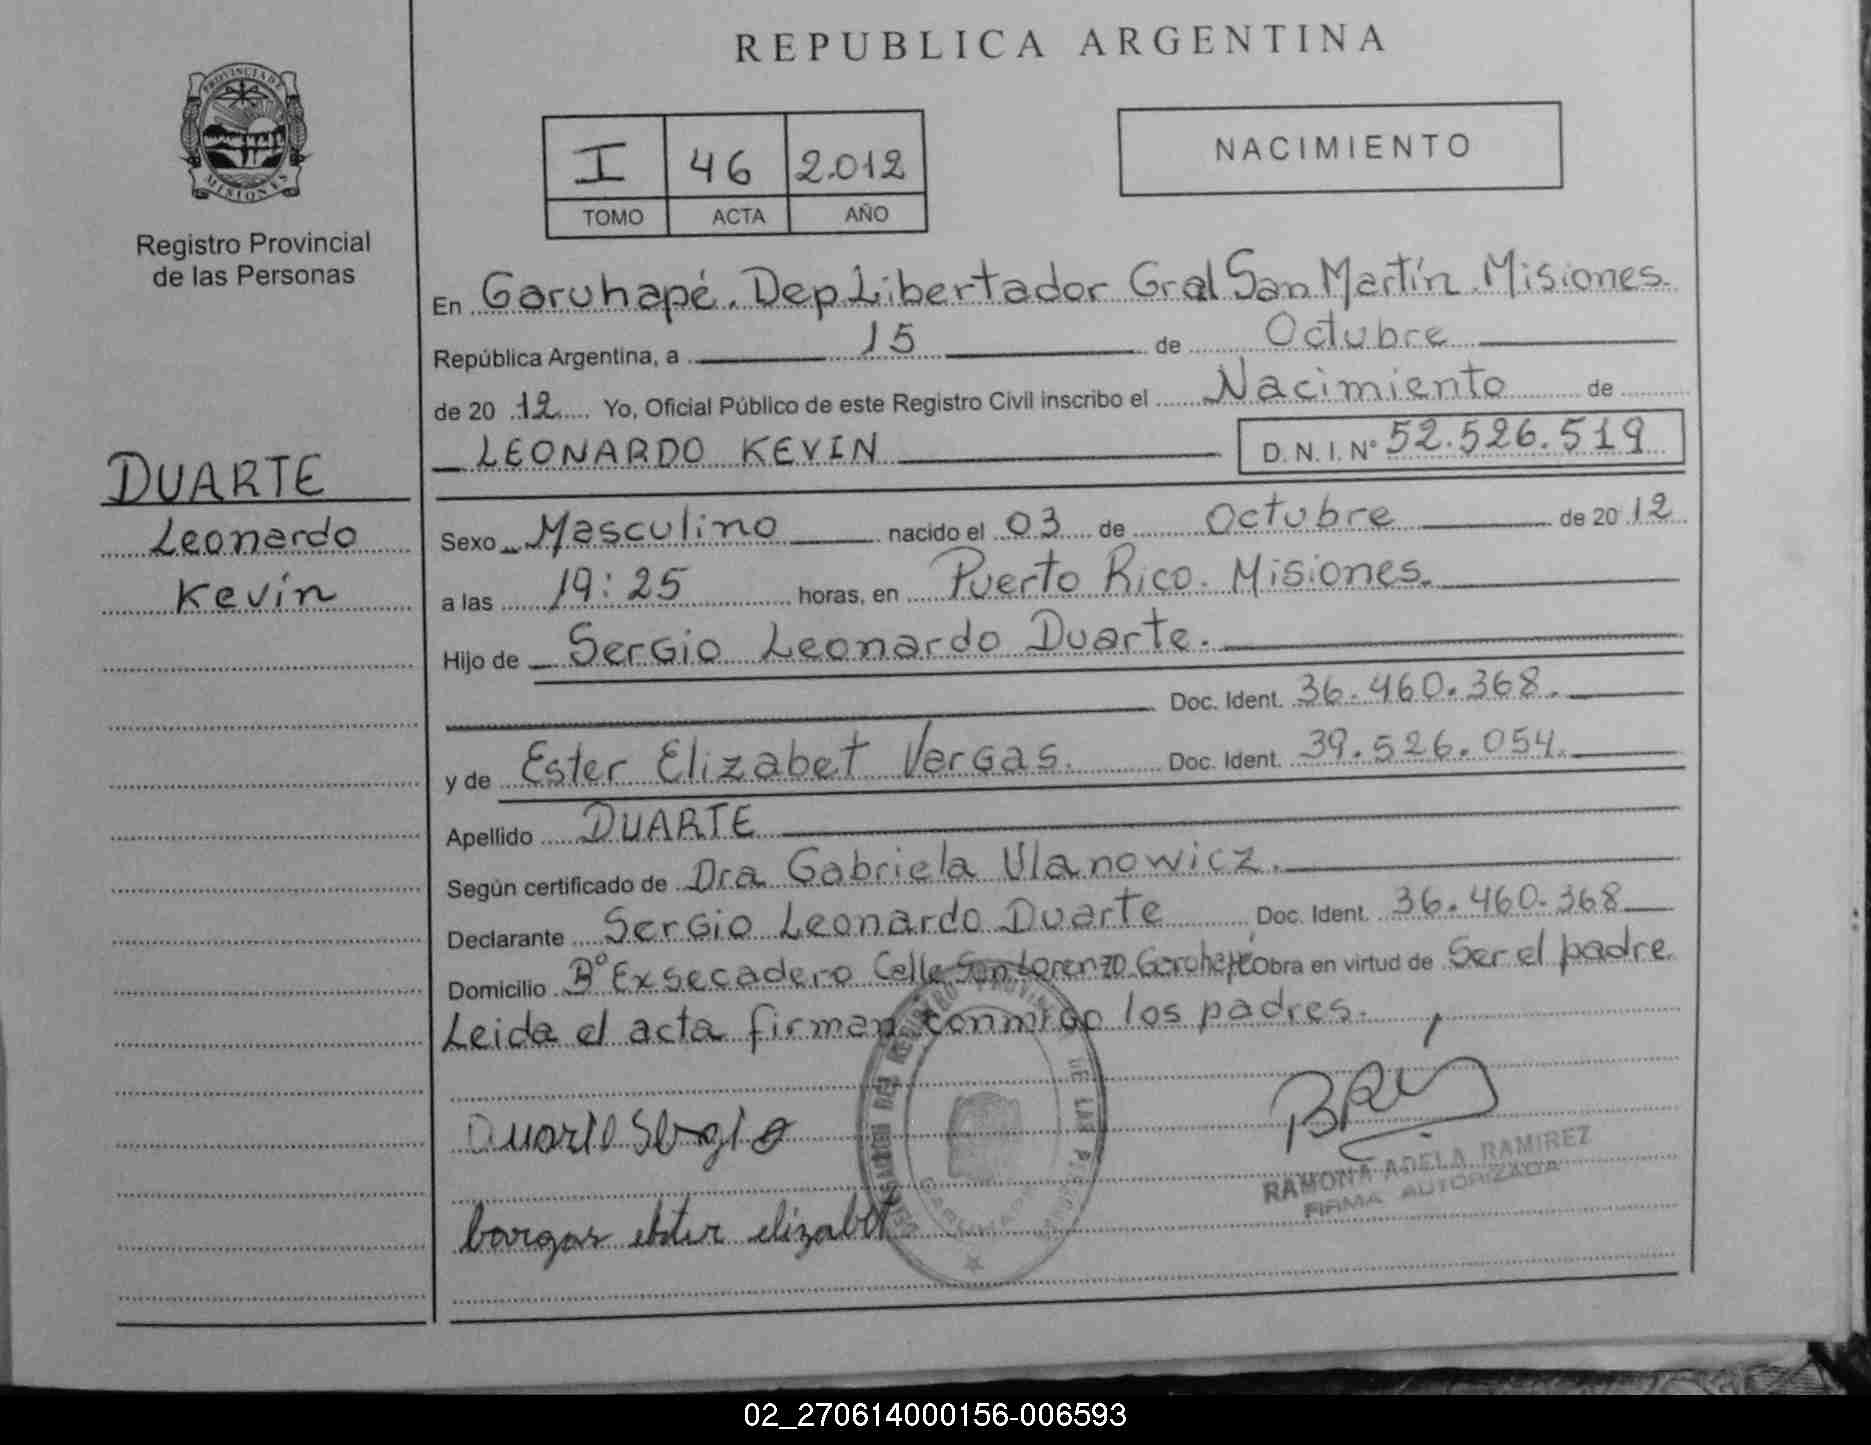 REPUBLICA ARGENTINA
PROVINCIA DE
MISIONES
Registro Provincial
de las Personas
I 46 2.012
TOMO ACTA AÑO
NACIMIENTO
En Garuhapé. Dep Libertador Gral San Martín. Misiones.
República Argentina, a 15 de Octubre
de 20 12 Yo, Oficial Público de este Registro Civil inscribo el Nacimiento de
LEONARDO KEVIN D.N.I. Nº 52.526.519
DUARTE
Leonardo
Kevin
Sexo Masculino nacido el 03 de Octubre de 20 12
a las 19:25 horas, en Puerto Rico. Misiones.
Hijo de Sergio Leonardo Duarte.
Doc. Ident. 36.460.368.
y de Ester Elizabet Vargas. Doc. Ident. 39.526.054.
Apellido DUARTE
Según certificado de Dra Gabriela Ulanowicz.
Declarante Sergio Leonardo Duarte Doc. Ident. 36.460.368
Domicilio Bº Exsecadero Calle San Lorenzo Garuhapé Obra en virtud de Ser el padre
Leida el acta firman conmigo los padres.
Duarte Sergio
bargas ester elizabet
RAMONA ADELA RAMIREZ
FIRMA AUTORIZADA
02_270614000156-006593